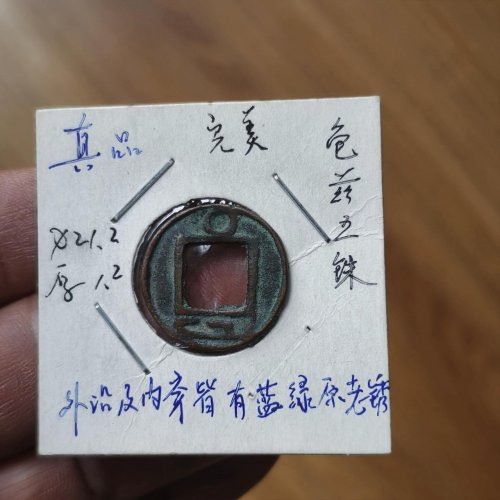 真品
完美
龟兹五铢
⌀21.2
厚1.2
外沿及内穿皆有蓝绿原老锈